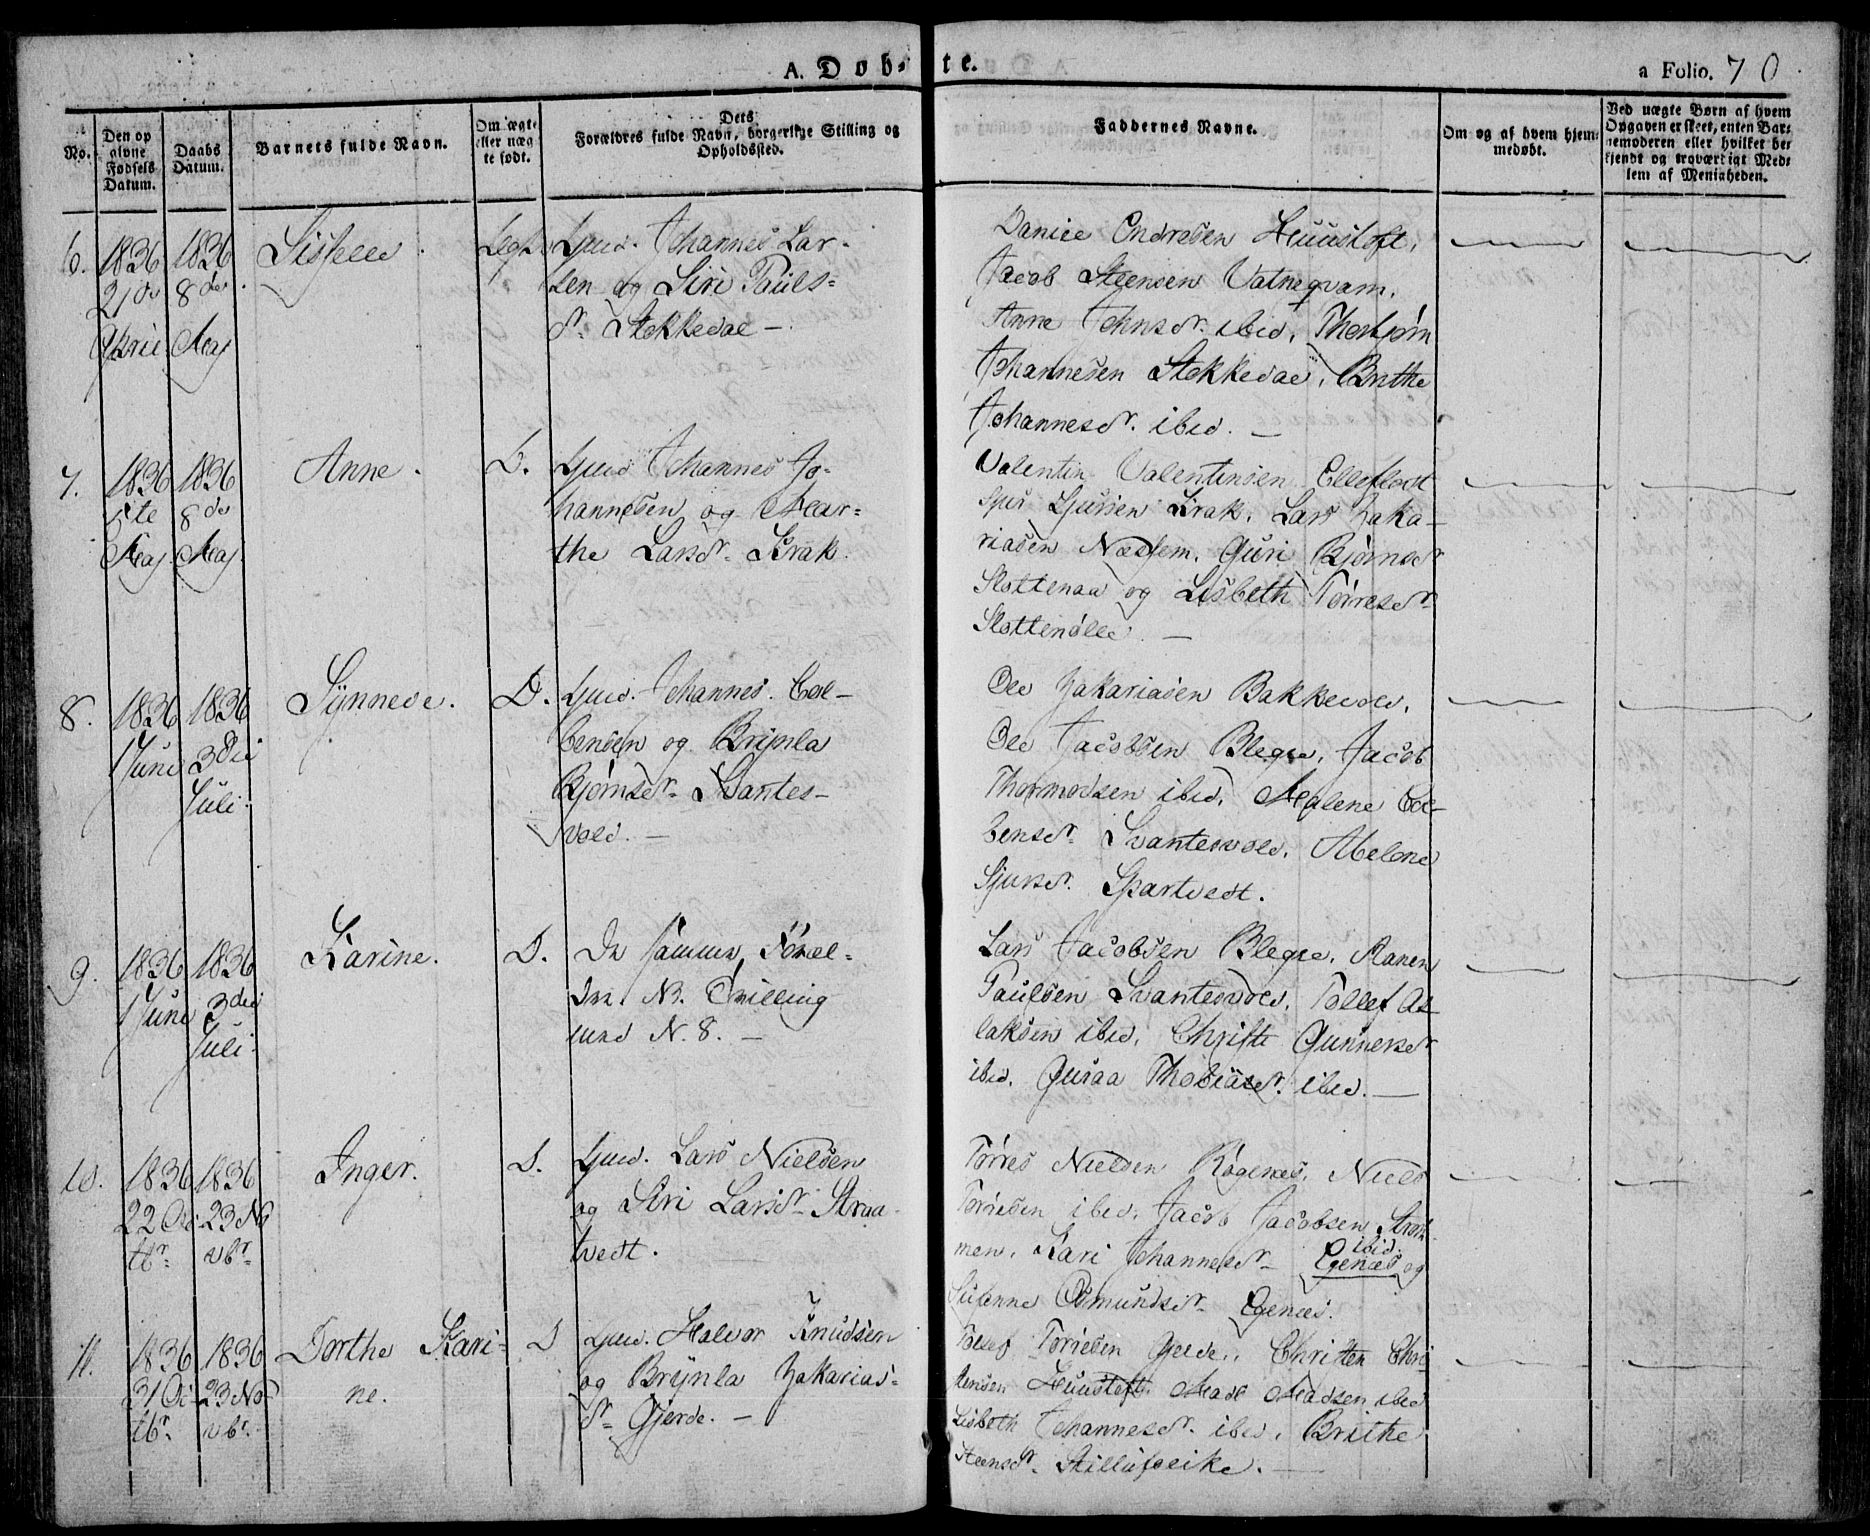 A. Døb- te.
a Folio. 70.
No.
Den op
givne
Fødsels
Datum.
Daabs
Datum.
Barnets fulde Navn.
Om ægte
eller uæg
te født.
Dets
Forældres fulde Navn, borgerlige Stilling og
Opholdssted.
Faddernes Navne.
Om og af hvem hjem-
medøbt.
Ved uægte Børn af hvem
Opgaven er skeet, enten Bar-
nemoderen eller hvilket be-
kjendt og troværdigt Med-
lem af Menigheden.
6.
1836
21de
April
1836
8de
Maj
Siselle.
Ægte
Gmd. Johannes Lar-
sen og Siri Pauls-
dr. Stokkedal -
Daniel Endresen Huustoft,
Jacob Steensen Vatneqvam,
Anne Johnsdr. ibid, Thorbjørn
Johannesen Stokkedal, Brithe
Johannesdr. ibid. -
7.
1836
5te
Maj
1836
8de
Maj
Anne.
D.
Gmd Johannes Jo-
hannesen og Mar-
the Larsdr. Krak.
Valentin Valentinsen
Krak. Lars Zaka-
riasen Næssem. Guri Bjørnsdr
Slottenaa og Lisbeth Tørresdr
8.
1836
1 Juni
1836
3die
Juli.
Synneve.
D.
Gmd. Johannes Col-
bensen og Brynla
Bjørnsdr. Svantes-
vold. -
Ole Zakariasen Bakkevold,
Ole Jacobsen Blegie, Jacob
Thormodsen ibid, Malene Col-
bensdr. Svantesvold, Abelone
Sjursdr. Spartvedt.
9.
1836
1 Juni
1836
3die
Juli.
Karine.
D.
De samme Foræl-
dre. NB. Tvilling
med N. 8. -
Lars Jacobsen Blegie,
Paulsen Svantesvold, Tollef As-
laksen ibid, Christi Gunnersdr
ibid. Guraa Thobiasdr. ibid. -
10.
1836
22 Oc-
tbr.
1836
23 No-
vbr.
Inger.
D.
Gmd. Lars Nielsen
og Siri Larsdr. Straa-
tvedt.
Tørres Nielsen Røgenes, Niels
Tørresen ibid, Jacob Jacobsen
Kari Johannesdr. ibid. Egenæs og
Susanne Osmundsdr. Egenæs.
11.
1836
31 Oc-
tbr.
1836
23 No-
vbr.
Dorthe Kari-
ne.
D
Gmd. Halvor Knudsen
og Brynla Zakarias-
dr. Gjerde. -
Tollef Tørresen Gjerde, Christen Chri-
stensen Huustoft, Mads Madsen ibid
Lisbeth Johannesdr. ibid, Brithe
Steensdr. -